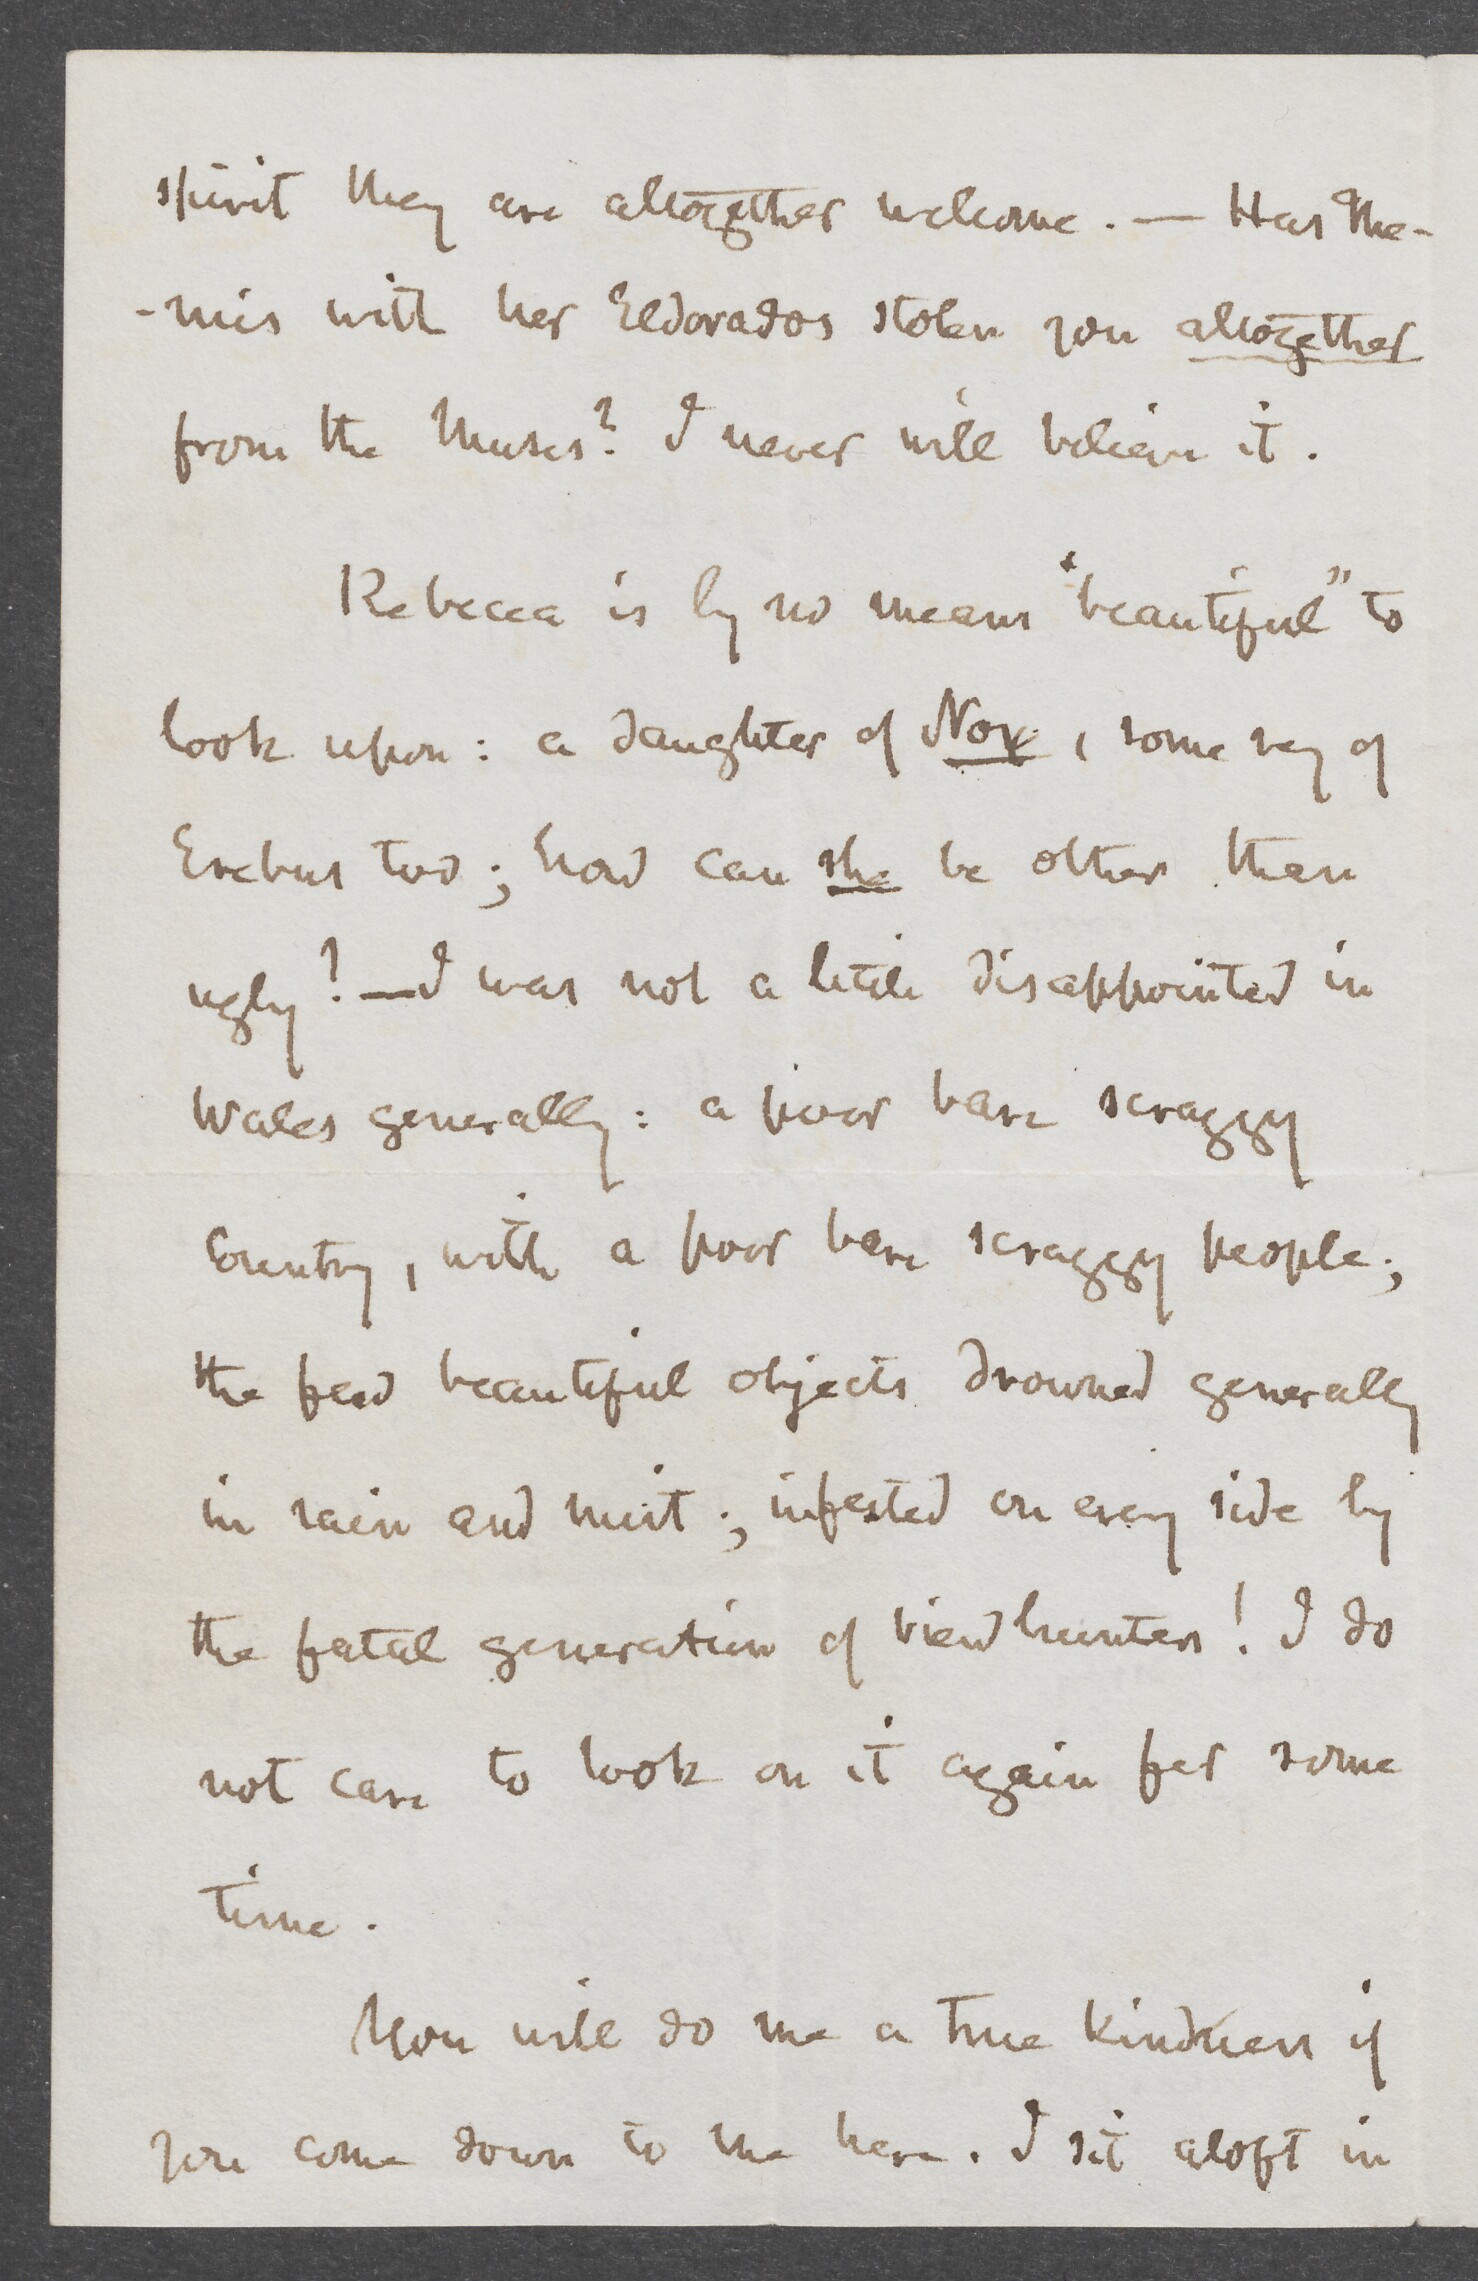 spirit they are altogether welcome. — Has The-
-mis with her Eldorados stolen you altogether
from the Muses? I never will believe it.
Rebecca is by no means "beautiful" to
look upon: a daughter of Nox, some say of
Erebus too; how can she be other than
ugly? — I was not a little disappointed in
Wales generally: a poor bare scraggy
Country, with a poor bare scraggy people;
the few beautiful objects drowned generally
in rain and mist; infested on every side by
the fatal generation of view hunters! I do
not care to look on it again for some
time.
You will do me a true kindness if
you come down to me here. I sit aloft in